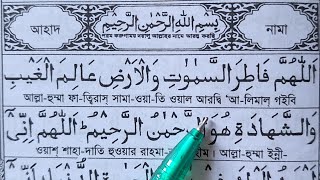 আহাদ
بِسْمِ اللهِ الرَّحْمٰنِ الرَّحِيْمِ
নামা
পরম করুণাময় দয়ালু আল্লাহর নামে আরম্ভ করছি
اَللّٰهُمَّ فَاطِرَ السَّمٰوٰتِ وَالْاَرْضِ عَالِمَ الْغَيْبِ
আল্লা-হুম্মা ফা-ত্বিরাস্ সামা-ওয়া-তি ওয়াল আরদ্বি 'আ-লিমাল্ গইবি
وَالشَّهَادَةِ هُوَ الرَّحْمٰنُ الرَّحِيْمُ اَللّٰهُمَّ اِنِّىْ
ওয়াশ্ শাহা-দাতি হুওয়ার রাহমা- হীম। আল্লা-হুম্মা ইন্নী-